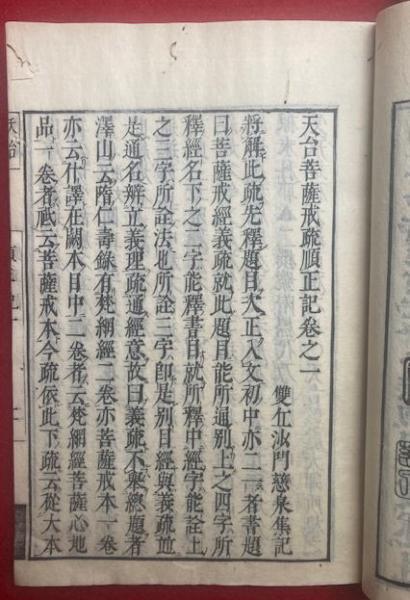 天台菩薩戒疏順正記卷之一
雙仁沙門慧泉集記
將解此疏先釋題目次正入文初中亦二一者書題
曰菩薩戒經義疏就此題目能所通別上之四字所
釋經名下之二字能釋書目就所釋中經字能詮上
之三字所詮法也所詮三字即是別目經與義疏並
是通名辨立義理疏通經意故曰義疏不與總題者
澤山云隋仁壽錄有梵網經二卷亦菩薩戒本一卷
亦云什譯在闕本目中二卷者云梵網經菩薩心地
品一卷者祇云菩薩戒本今疏依此下疏云從大本